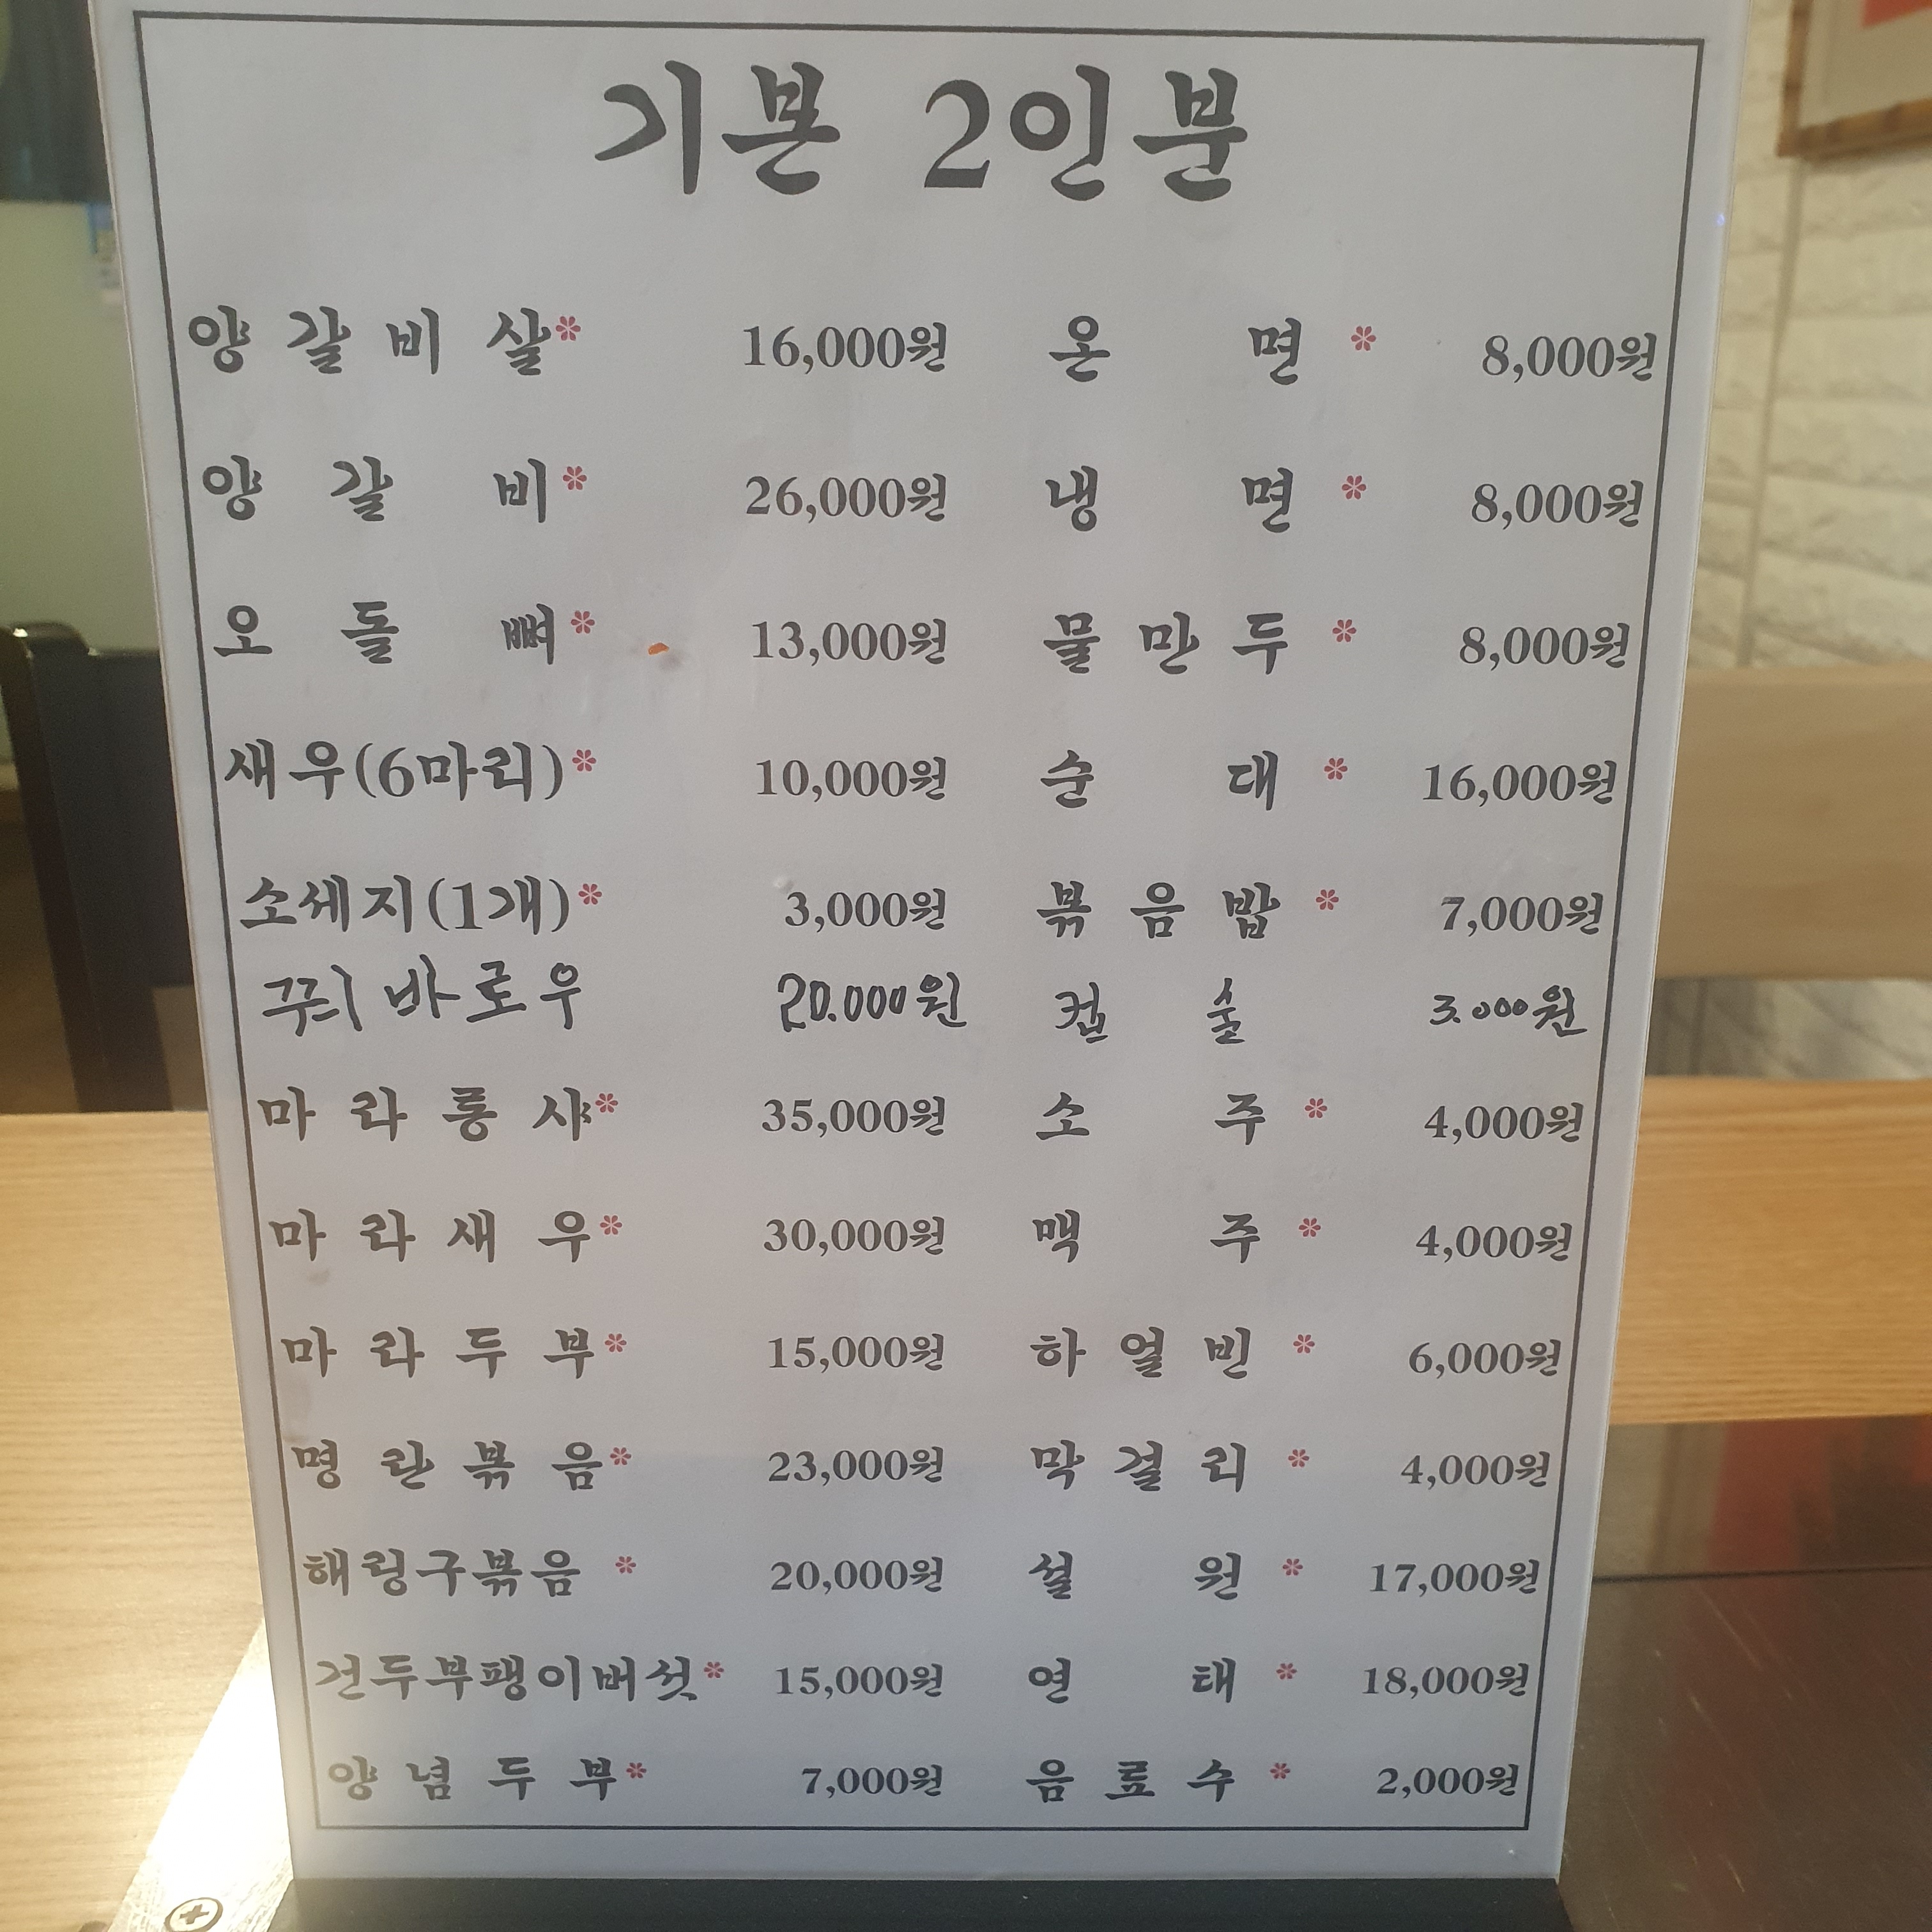 기본 2인분
양갈비살* 16,000원 온면* 8,000원
양갈비* 26,000원 냉면* 8,000원
오돌뼈* 13,000원 물만두* 8,000원
새우(6마리)* 10,000원 순대* 16,000원
소세지(1개)* 3,000원 볶음밥* 7,000원
꾸ㅢ바로우 20.000원 컵술 3.000원
마라롱샤* 35,000원 소주* 4,000원
마라새우* 30,000원 맥주* 4,000원
마라두부* 15,000원 하얼빈* 6,000원
명란볶음* 23,000원 막걸리* 4,000원
해링구볶음* 20,000원 설원* 17,000원
건두부팽이버섯* 15,000원 연태* 18,000원
양념두부* 7,000원 음료수* 2,000원